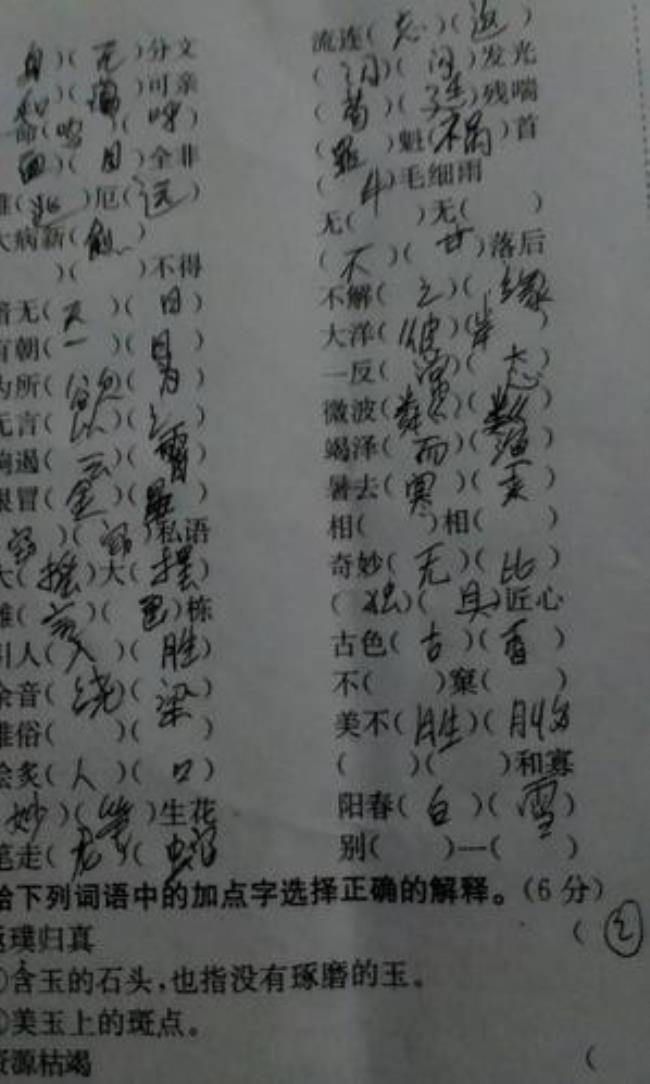 身)(无)分文
和)(蔼)可亲
命(呜)(呼)
面)(目)全非
)厄(运)
大病新(愈)
)(  )不得
暗无(天)(日)
有朝(一)(日)
为所(欲)(为)
无言(以)(
响遏(云)(霄)
眼冒(金)(星)
窃)(窃)私语
大(摇)大(摆)
雕(  )(  )栋
引人(入)(胜)
余音(绕)(梁)
雅俗(  )(  )
脍炙(人)(口)
妙)(笔)生花
笔走(龙)(蛇)
流连(忘)(返)
(闪)(闪)发光
(苟)(延)残喘
(罪)魁(祸)首
(牛)毛细雨
无(  )无(  )
(不)(甘)落后
不解(之)(缘)
大洋(彼)(岸)
一反(常)(态)
微波(粼)(粼)
竭泽(而)(渔)
暑去(寒)(来)
相(  )相(  )
奇妙(无)(比)
(独)(具)匠心
古色(古)(香)
不(  )窠(  )
美不(胜)(收)
(  )(  )和寡
阳春(白)(雪)
别(  )一(  )
给下列词语中的加点字选择正确的解释。(6分)
返璞归真 ( ②
①含玉的石头,也指没有琢磨的玉。
②美玉上的斑点。
资源枯竭 (